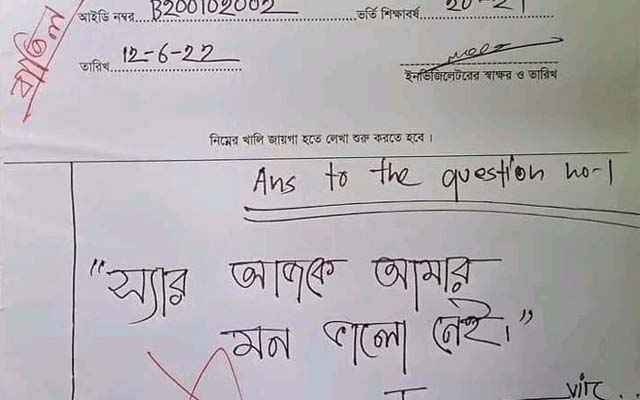 বাতিল
আইডি নম্বর B200102002 ভর্তি শিক্ষাবর্ষ 20-21
তারিখ 12-6-22
ইনভিজিলেটরের স্বাক্ষর ও তারিখ
নিম্নের খালি জায়গা হতে লেখা শুরু করতে হবে।
Ans to the question no-1
"স্যার আজকে আমার
মন ভালো নেই।"